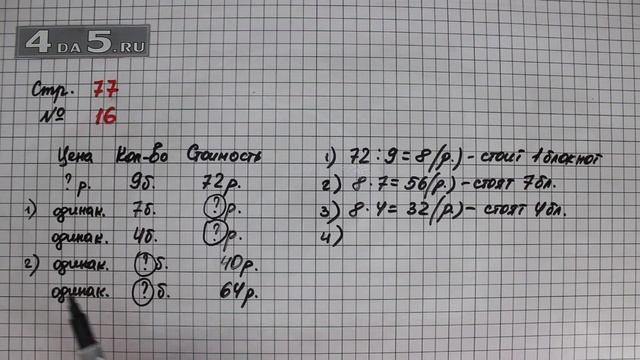 4 DA 5.RU
Стр. 77
№ 16
Цена Кол-во Стоимость
? р. 9б. 72р.
1) одинак. 7б. ? р.
одинак. 4б. ? р.
2) одинак. ? б. 40р.
одинак. ? б. 64р.
1) 72 : 9 = 8 (р.) - стоит 1 блокнот
2) 8 · 7 = 56 (р.) - стоят 7 бл.
3) 8 · 4 = 32 (р.) - стоят 4 бл.
4)